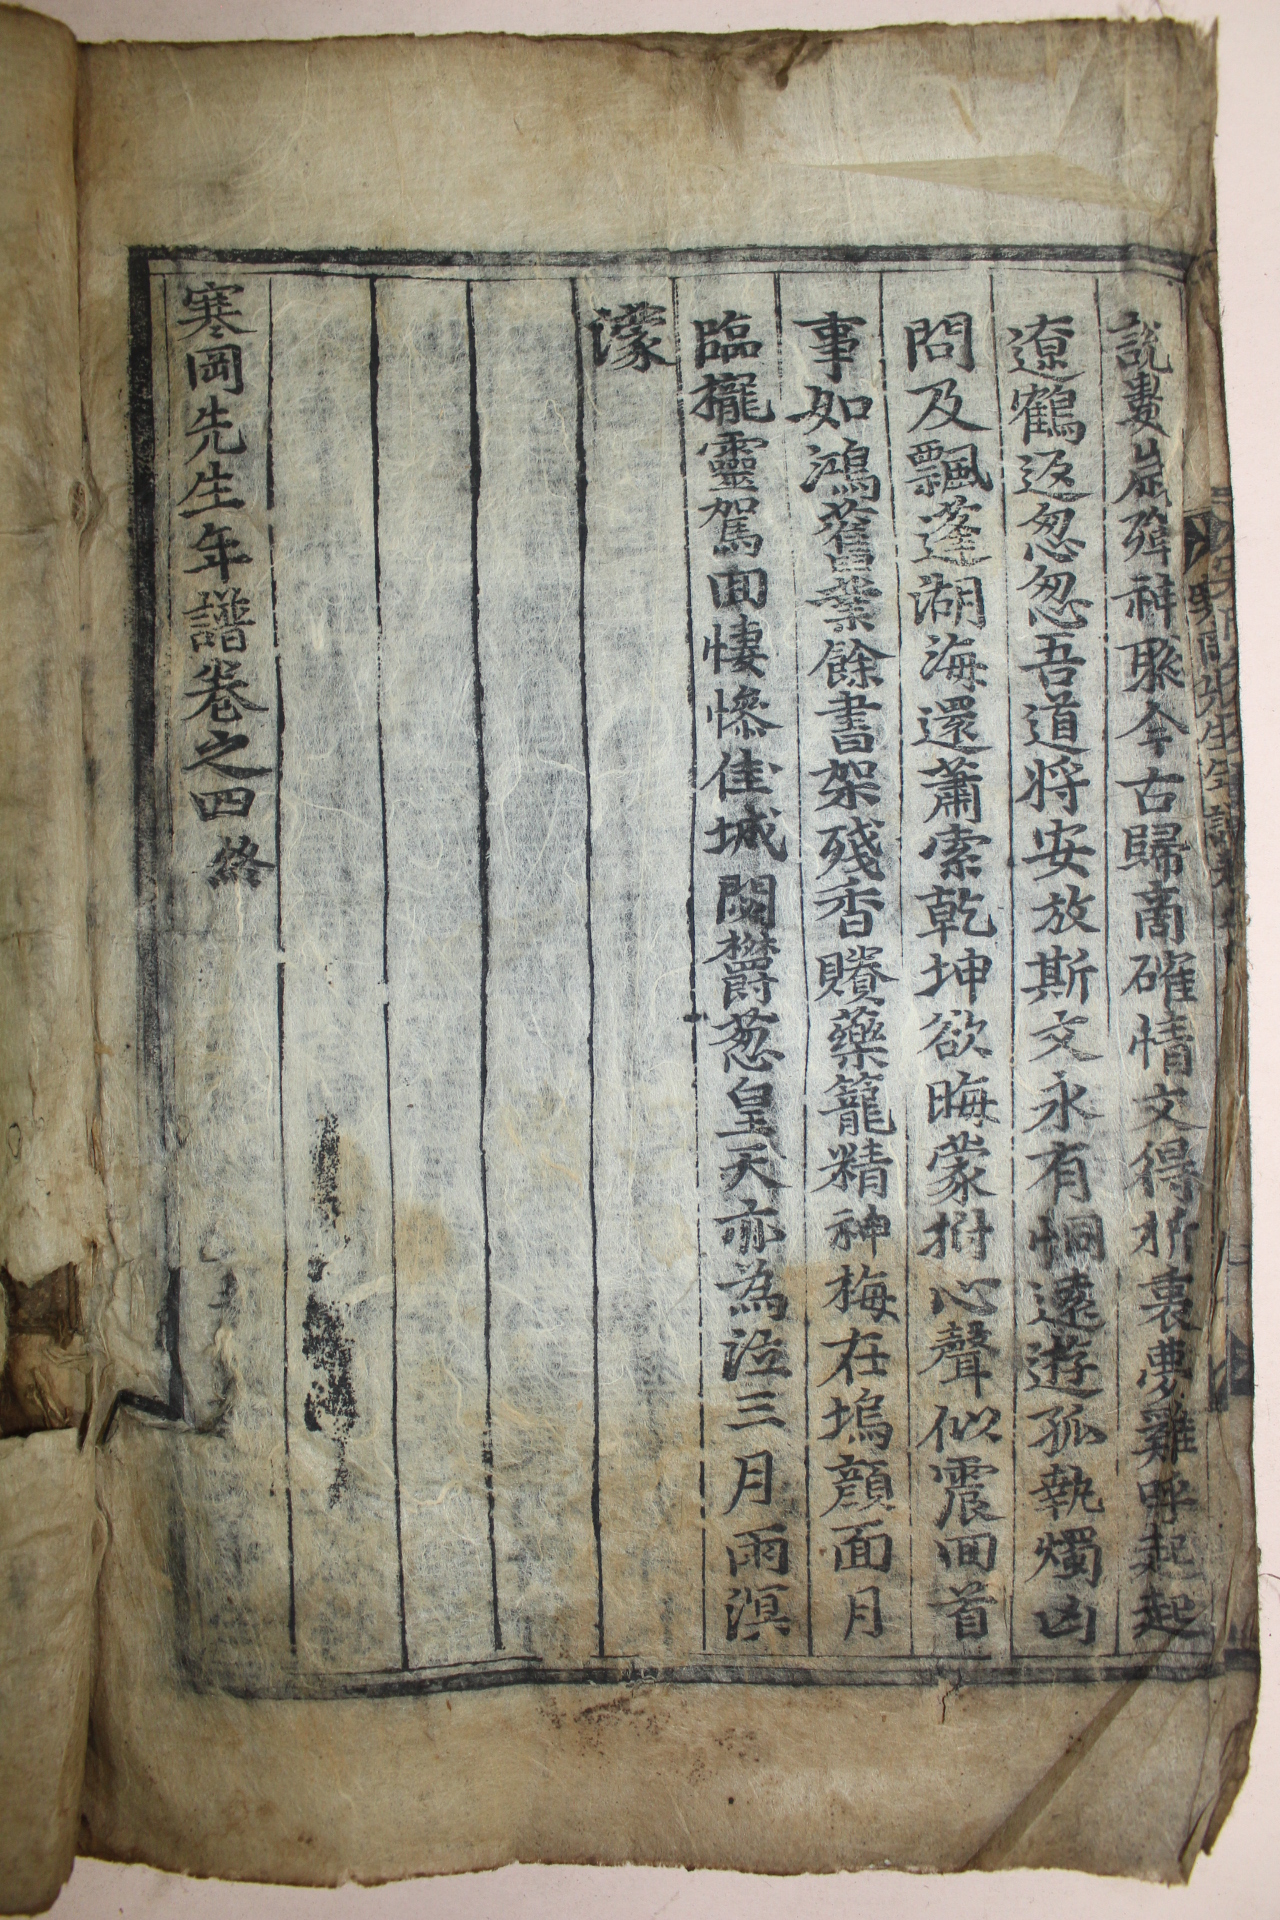 說數虛殫祥聚今古歸商確情文得折衷夢雞呼起起
遼鶴返怱怱吾道將安放斯文永有恫遠遊孤執燭凶
問及飄蓬湖海還蕭索乾坤欲晦蒙拊心聲似震回首
事如鴻舊業餘書架殘香賸藥籠精神梅在塢顔面月
臨櫳靈駕回悽慘佳城閟欝葱皇天亦為泣三月雨溟
濛
寒岡先生年譜卷之四 終